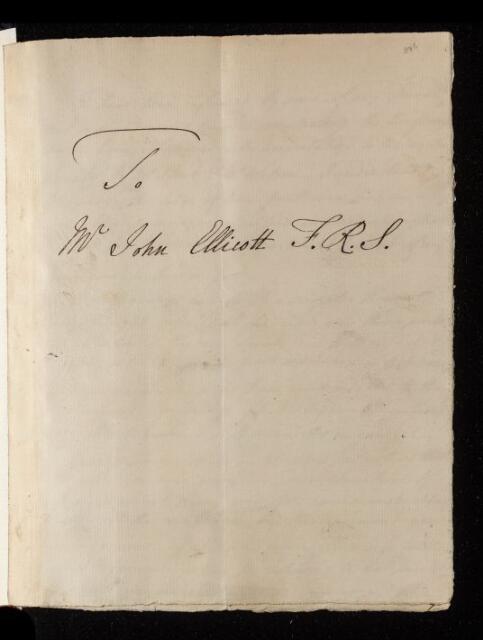 To
Mr John Ellicott F.R.S.